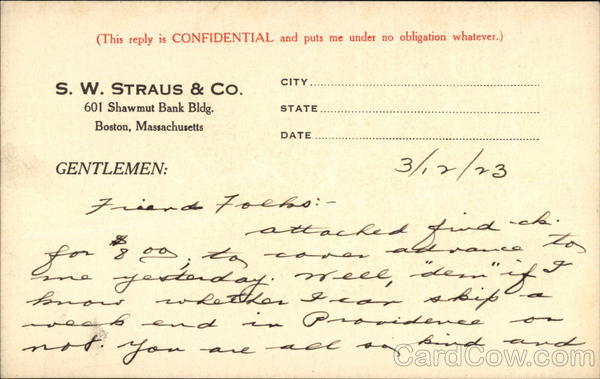 (This reply is CONFIDENTIAL and puts me under no obligation whatever.)
S. W. STRAUS & CO.
601 Shawmut Bank Bldg.
Boston, Massachusetts
CITY
STATE
DATE
GENTLEMEN:
3/12/23
Friend Folks:-
attached find ck.
for $8.00, to cover advance to
me yesterday. Well, "dern" if I
know whether I can skip a
week end in Providence or
not. You are all so kind and
CardCow.com